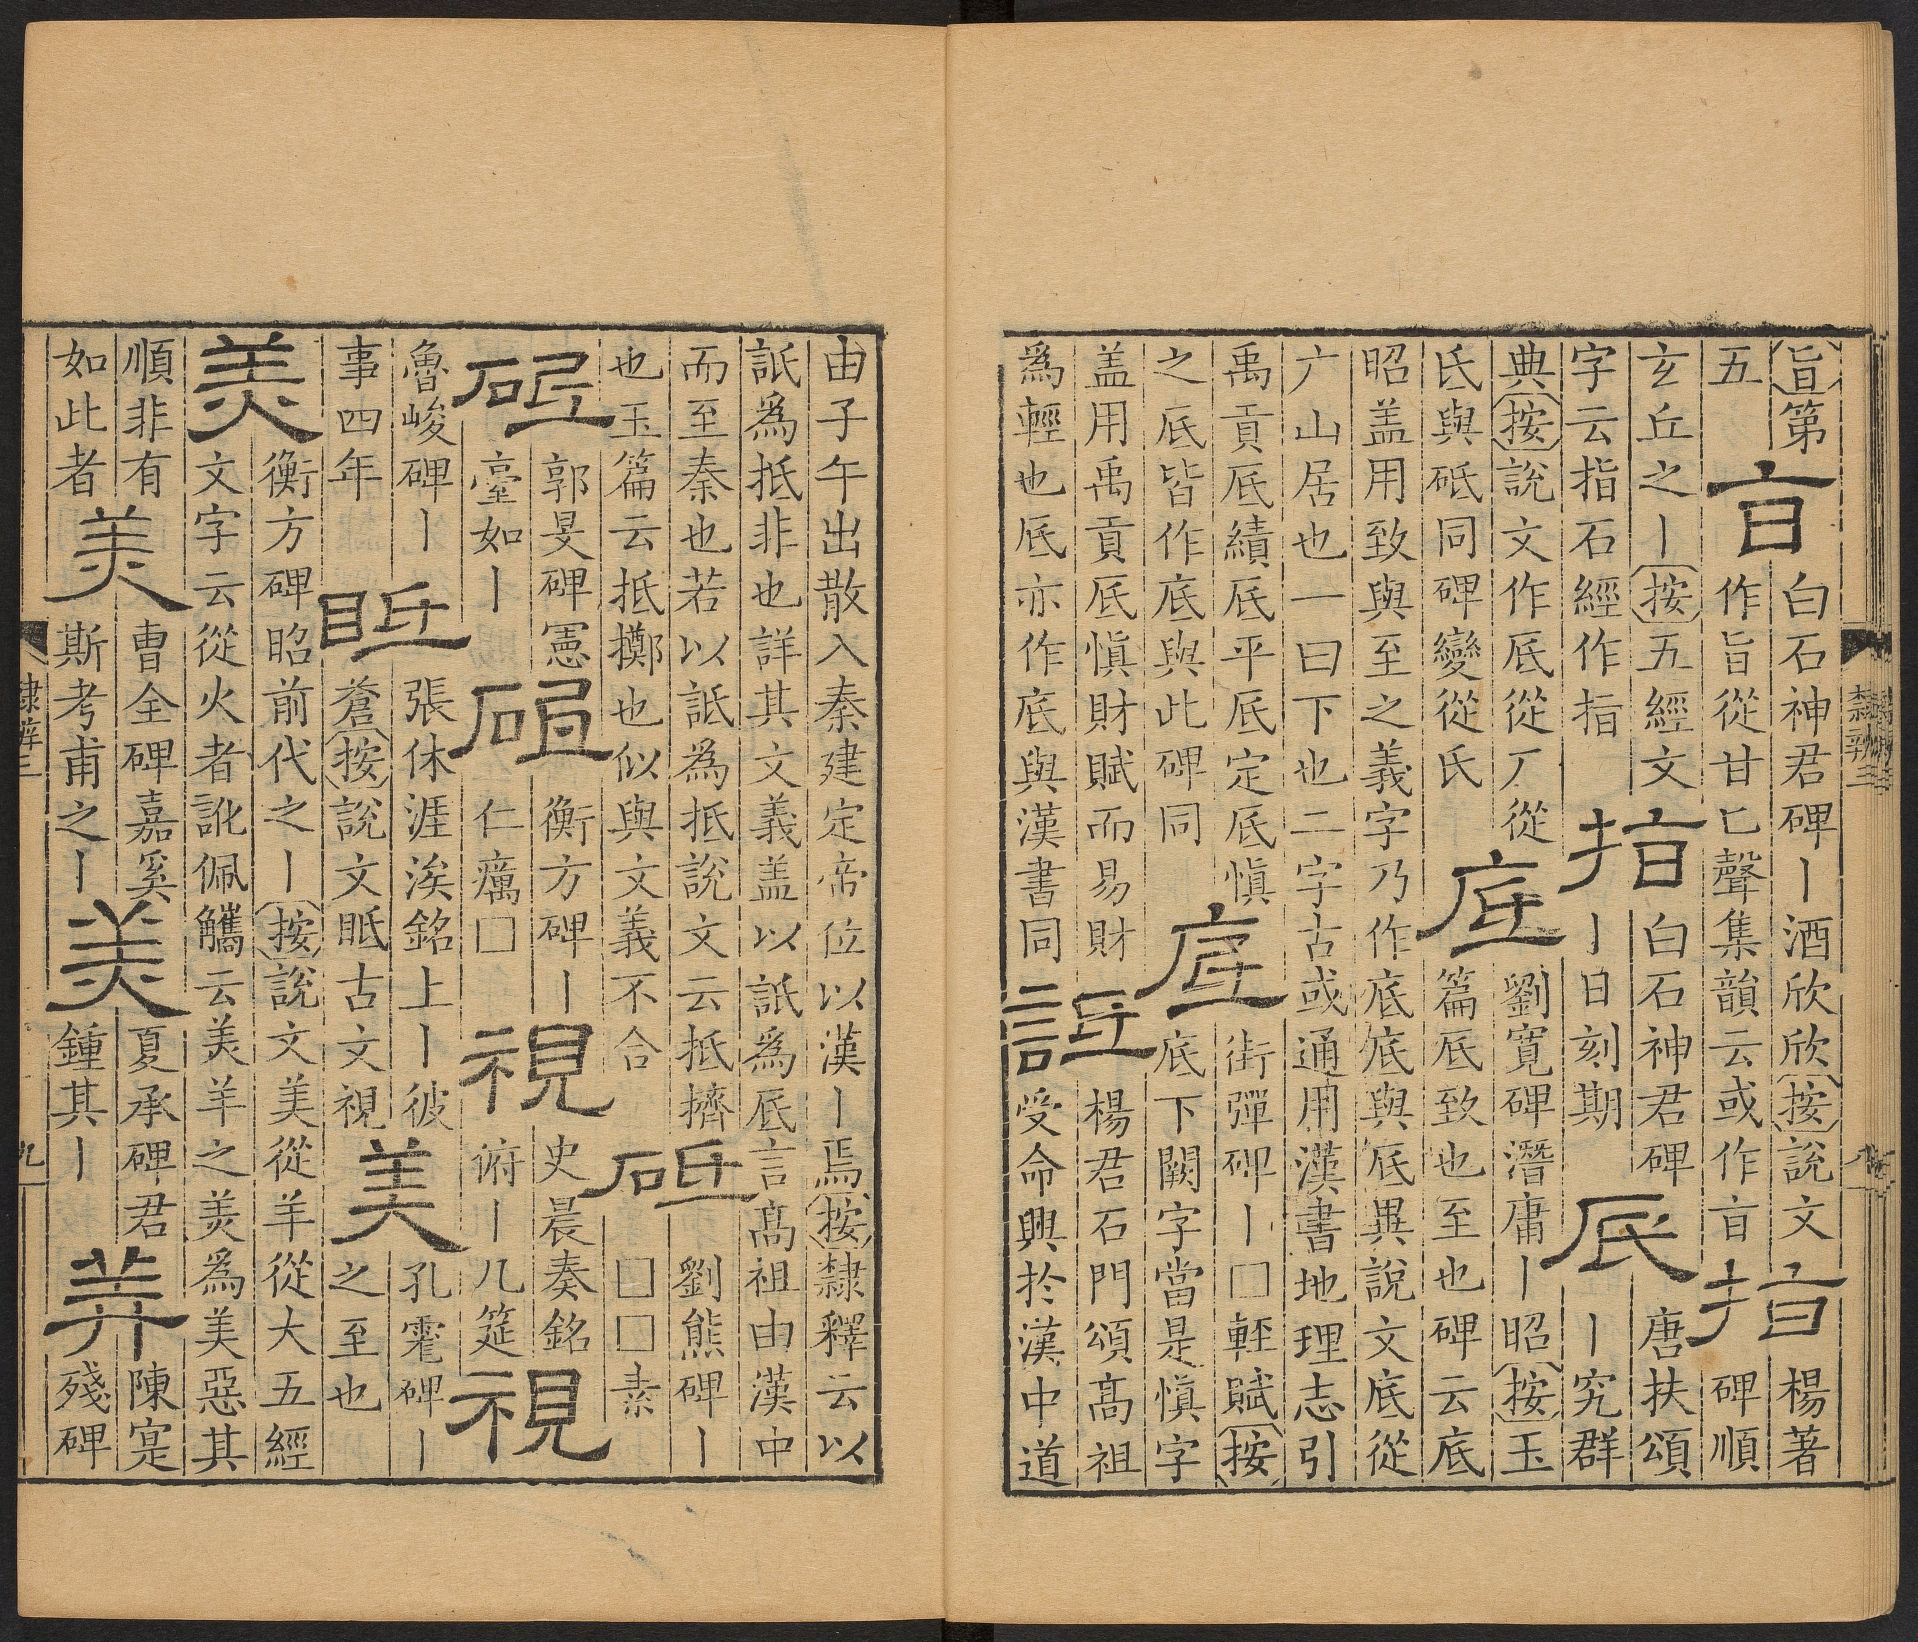 旨第
五
旨
白石神君碑丨酒欣欣按說文
作旨從甘匕聲集韻云或作㫖
指
楊著
碑順
玄丘之丨按五經文
字云指石經作指
指
白石神君碑
丨日刻期
厎
唐扶頌
丨究群
典按說文作厎從厂從
氏與砥同碑變從氐
底
劉寬碑潛庸丨昭按玉
篇厎致也至也碑云底
昭盖用致與至之義字乃作底底與厎異說文底從
广山居也一曰下也二字古或通用漢書地理志引
禹貢厎績厎平厎定厎慎
之厎皆作底與此碑同
底
街彈碑丨□輕賦按
底下闕字當是慎字
盖用禹貢厎慎財賦而易財
為輕也厎亦作底與漢書同
詆
楊君石門頌高祖
受命興於漢中道
隸辨三
由子午出散入秦建定帝位以漢丨焉按隸釋云以
詆為抵非也詳其文義盖以詆為厎言高祖由漢中
而至秦也若以詆為抵說文云抵擠
也玉篇云抵擲也似與文義不合
砥
劉熊碑丨
□□素
砥
郭旻碑憲
臺如丨
砠
衡方碑丨
仁癘□
視
史晨奏銘
俯丨几筵
視
魯峻碑丨
事四年
眡
張休涯涘銘上丨彼
蒼按說文眡古文視
美
孔宙碑丨
之至也
羙
衡方碑昭前代之丨按說文美從羊從大五經
文字云從火者訛佩觿云羙羊之羙為美惡其
順非有
如此者
羙
曹全碑嘉奚
斯考甫之丨
羙
夏承碑君
鍾其丨
美
陳寔
殘碑
隸辨三
九